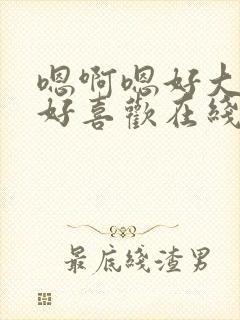 嗯啊嗯好大
好喜歡在綫
最底綫渣男